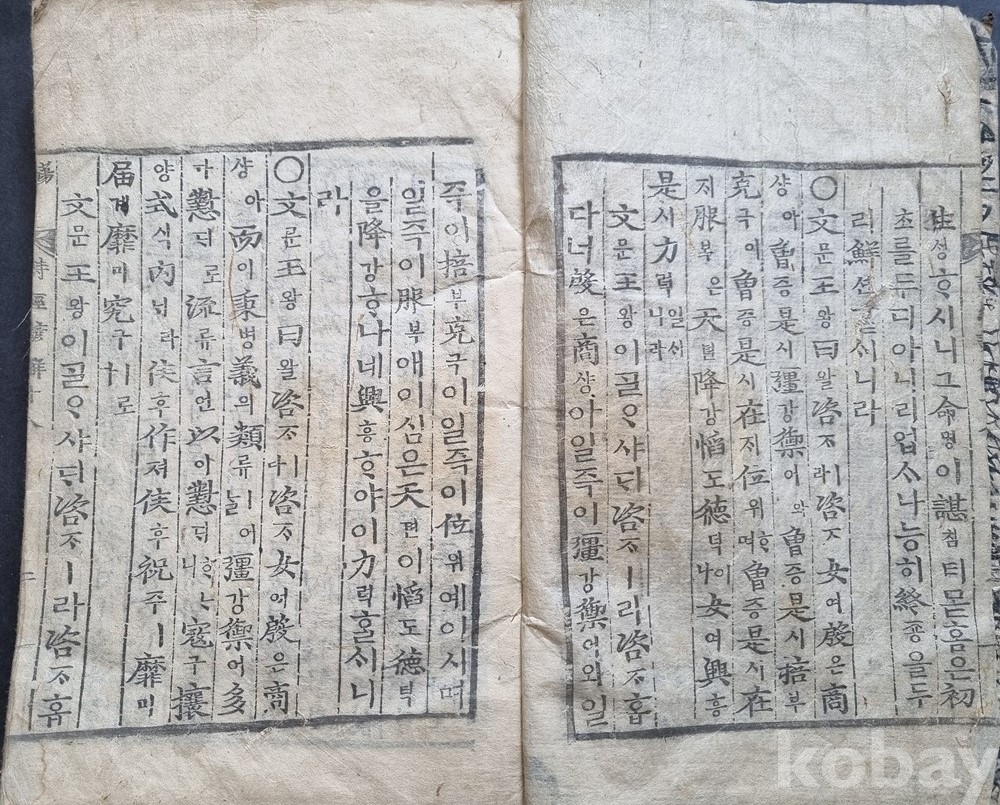 生ᄉᆡᆼᄒᆞ시니그命명이諶침티몯홈은初
초를두디아니리업스나능히終죵을두
리鮮션ᄒᆞ니라
○文문王왕曰왈咨ᄌᆞㅣ라咨ᄌᆞ女여殷은商
샹아曾증是시彊강禦어와曾증是시掊부
克극이曾증是시在ᄌᆡ位위며曾증是시在
ᄌᆡ服복은天텬降강慆도德덕이나女여興흥
是시力력일ᄉᆡ니라
文문王왕이ᄀᆞᆯᄋᆞ샤ᄃᆡ咨ᄌᆞㅣ라咨ᄌᆞ홉
다너殷은商샹아일즉이彊강禦어와일
즉이掊부克극이일즉이位위예이시며
일즉이服복애이심은天텬이慆도德덕
을降강ᄒᆞ나네興흥ᄒᆞ야이力력ᄒᆞᆯᄉᆡ니
라
○文문王왕曰왈咨ᄌᆞㅣ라咨ᄌᆞ女여殷은商
샹아而이秉병義의類류ㅣ어늘彊강禦어多
다懟ᄃᆡ로流류言언以이懟ᄃᆡᄒᆞᄂᆞ니寇구攘
양式식內ᄂᆡ라侯후作져侯후祝주ㅣ靡미
届계靡미究구ㅣ로다
文문王왕이ᄀᆞᆯᄋᆞ샤ᄃᆡ咨ᄌᆞㅣ라咨ᄌᆞ홉
詩經諺解
kobay